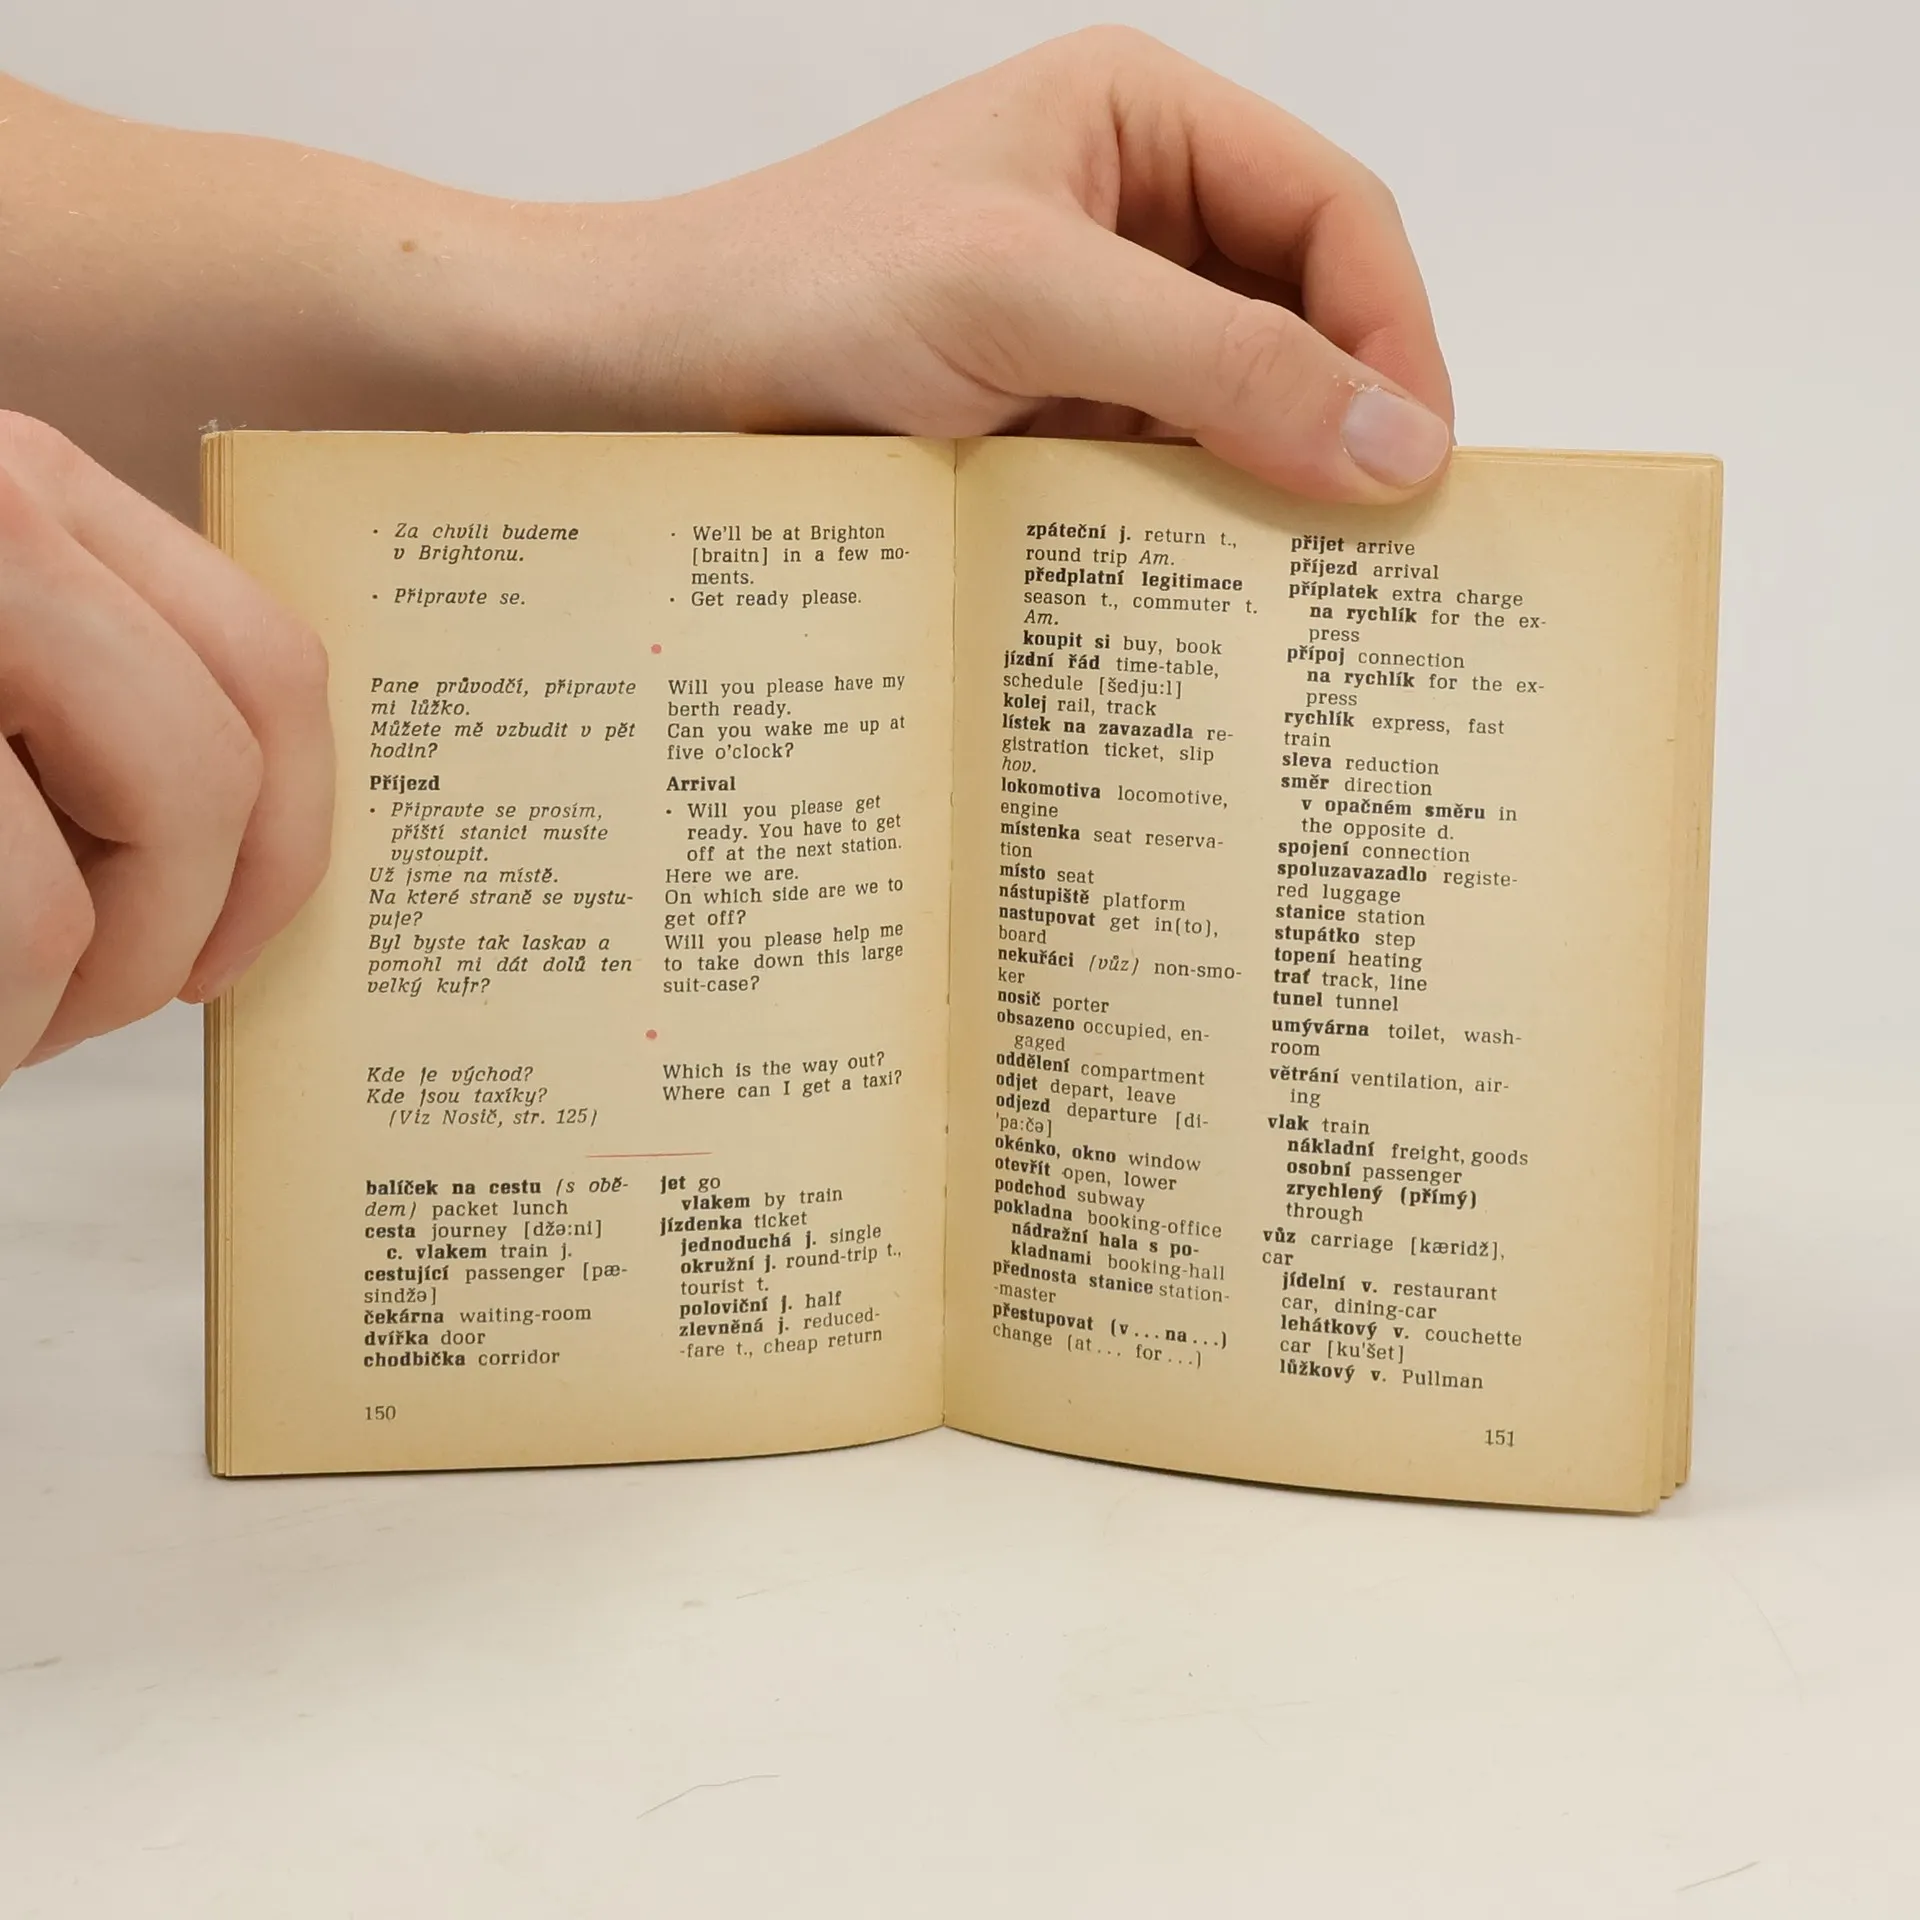 · Za chvíli budeme
v Brightonu.
· Připravte se.
· We'll be at Brighton
[braitn] in a few mo-
ments.
· Get ready please.
Pane průvodčí, připravte
mi lůžko.
Můžete mě vzbudit v pět
hodin?
Will you please have my
berth ready.
Can you wake me up at
five o'clock?
Příjezd
· Připravte se prosím,
příští stanici musíte
vystoupit.
Už jsme na místě.
Na které straně se vystu-
puje?
Byl byste tak laskav a
pomohl mi dát dolů ten
velký kufr?
Arrival
· Will you please get
ready. You have to get
off at the next station.
Here we are.
On which side are we to
get off?
Will you please help me
to take down this large
suit-case?
Kde je východ?
Kde jsou taxíky?
(Viz Nosič, str. 125)
Which is the way out?
Where can I get a taxi?
balíček na cestu (s obě-
dem) packet lunch
cesta journey [džə:ni]
c. vlakem train j.
cestující passenger [pæ-
sindžə]
čekárna waiting-room
dvířka door
chodbička corridor
jet go
vlakem by train
jízdenka ticket
jednoduchá j. single
okružní j. round-trip t.,
tourist t.
poloviční j. half
zlevněná j. reduced-
-fare t., cheap return
150
zpáteční j. return t.,
round trip Am.
předplatní legitimace
season t., commuter t.
Am.
koupit si buy, book
jízdní řád time-table,
schedule [šedju:l]
kolej rail, track
lístek na zavazadla re-
gistration ticket, slip
hov.
lokomotiva locomotive,
engine
místenka seat reserva-
tion
místo seat
nástupiště platform
nastupovat get in(to),
board
nekuřáci (vůz) non-smo-
ker
nosič porter
obsazeno occupied, en-
gaged
oddělení compartment
odjet depart, leave
odjezd departure [di-
'pa:čə]
okénko, okno window
otevřít open, lower
podchod subway
pokladna booking-office
nádražní hala s po-
kladnami booking-hall
přednosta stanice station-
-master
přestupovat (v...na...)
change (at... for...)
přijet arrive
příjezd arrival
příplatek extra charge
na rychlík for the ex-
press
přípoj connection
na rychlík for the ex-
press
rychlík express, fast
train
sleva reduction
směr direction
v opačném směru in
the opposite d.
spojení connection
spoluzavazadlo registe-
red luggage
stanice station
stupátko step
topení heating
trať track, line
tunel tunnel
umývárna toilet, wash-
room
větrání ventilation, air-
ing
vlak train
nákladní freight, goods
osobní passenger
zrychlený (přímý)
through
vůz carriage [kæridž],
car
jídelní v. restaurant
car, dining-car
lehátkový v. couchette
car [ku'šet]
lůžkový v. Pullman
151